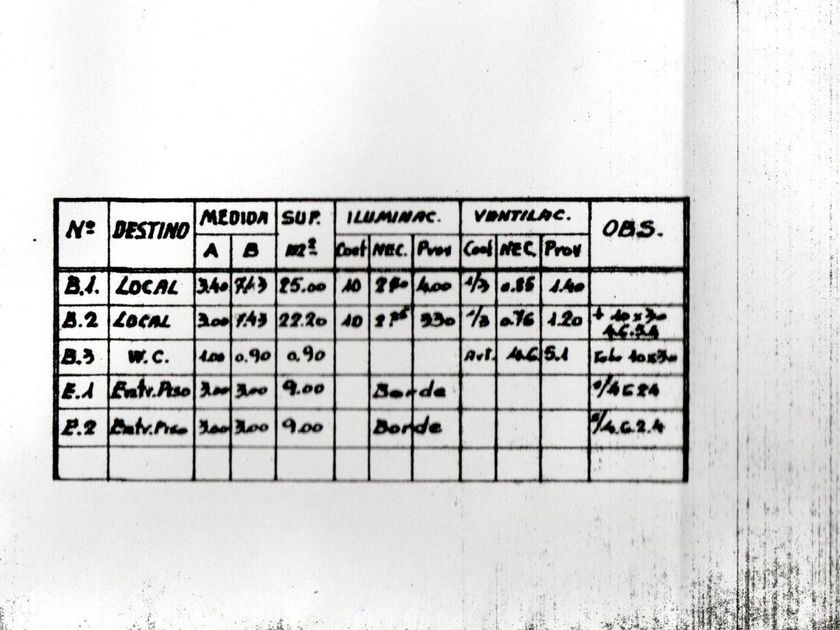 Nº DESTINO MEDIDA SUP. ILUMINAC. VENTILAC. OBS.
A B m2 Coef NEC. Prov Coef NEC. Prov
B.1. LOCAL 3.40 7.43 25.00 10 4.00 1/3 1.40
B.2 LOCAL 3.00 7.43 22.20 10 3.30 1/3 0.76 1.20 10x30
4.6.2.4
B.3 W.C. 1.00 0.90 0.90 Art. 4.6.5.1 Tubo 10x30
E.1 Entr.Piso 3.00 3.00 9.00 Borde s/4.6.2.4
E.2 Entr.Piso 3.00 3.00 9.00 Borde s/4.6.2.4